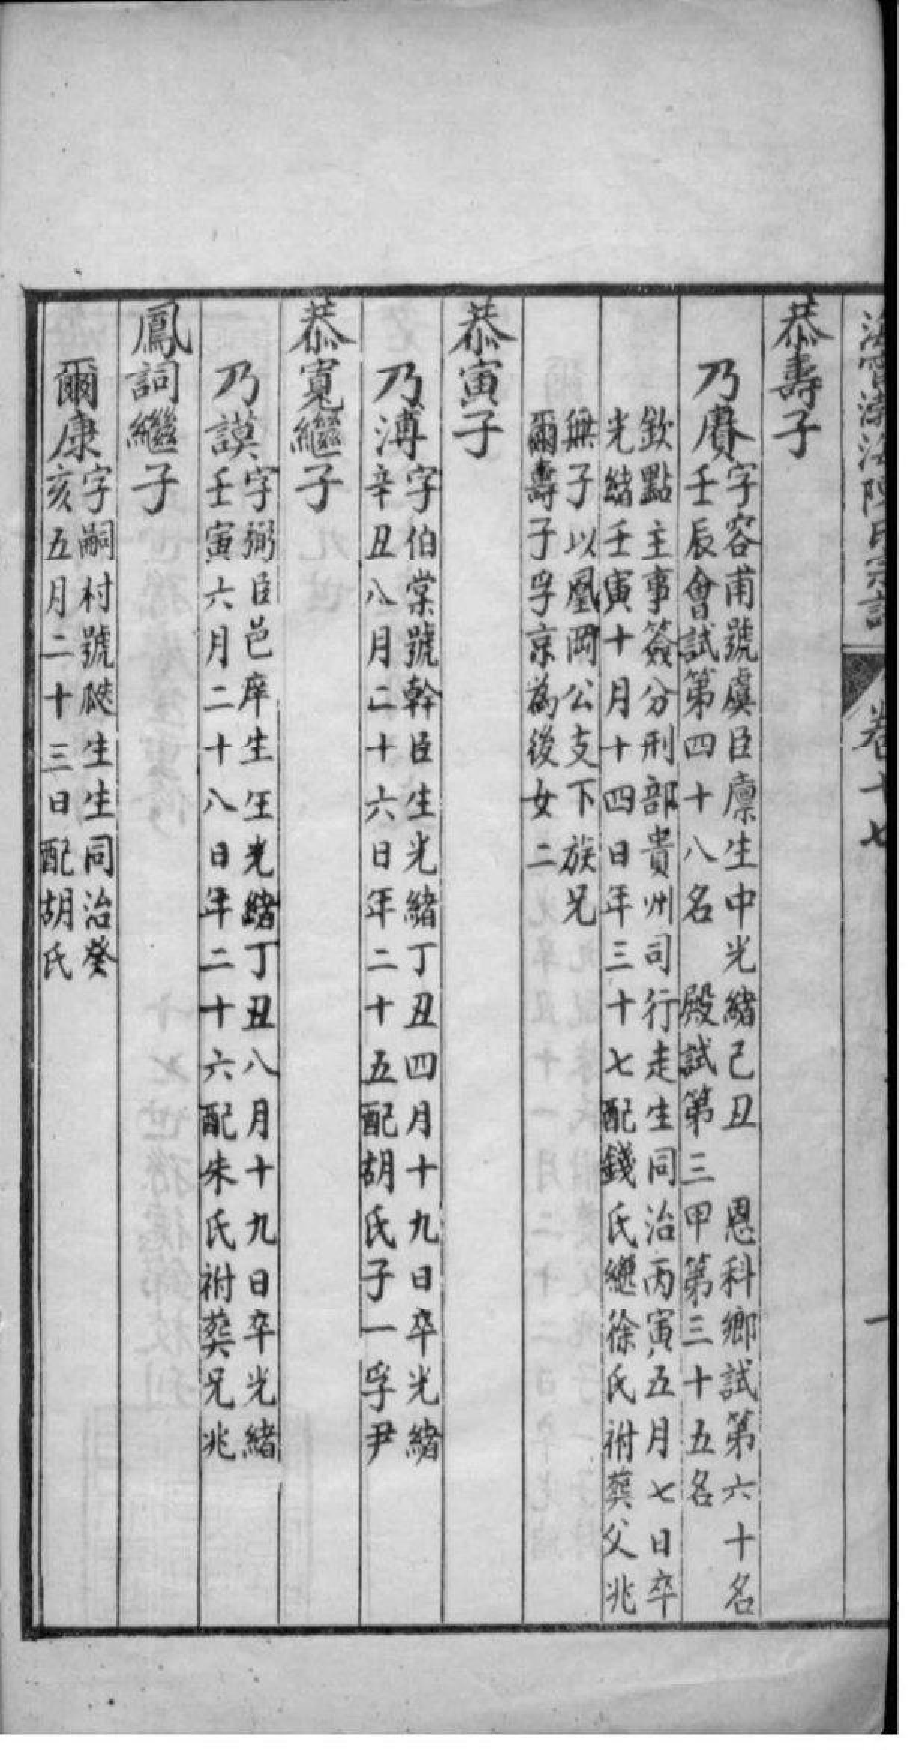 海寧渤海陳氏宗譜
卷十七
一
恭壽子
乃賡
字容甫號虞臣廩生中光緒己丑 恩科鄉試第六十名
壬辰會試第四十八名 殿試第三甲第三十五名
欽點主事簽分刑部貴州司行走生同治丙寅五月七日卒
光緒壬寅十月十四日年三十七配錢氏繼徐氏祔葬父兆
無子以鳳岡公支下族兄
爾壽子孚京為後女二
恭寅子
乃溥
字伯棠號幹臣生光緒丁丑四月十九日卒光緒
辛丑八月二十六日年二十五配胡氏子一孚尹
恭寬繼子
乃謨
字弼臣邑庠生生光緒丁丑八月十九日卒光緒
壬寅六月二十八日年二十六配朱氏祔葬兄兆
鳳詞繼子
爾康
字嗣村號 生生同治癸
亥五月二十三日配胡氏